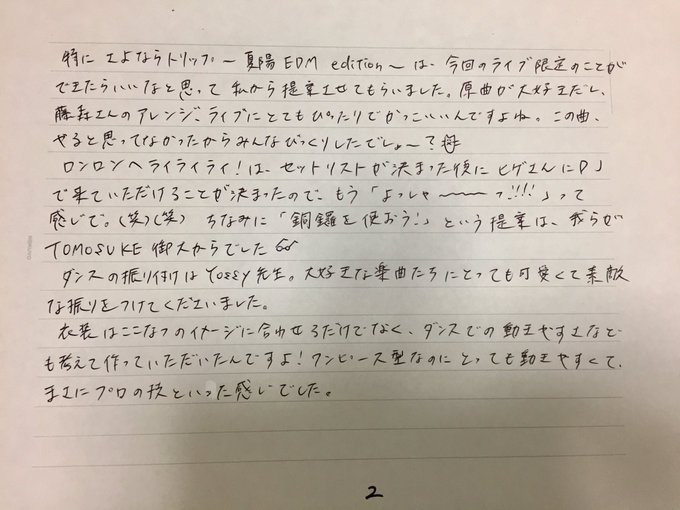 特に さよならトリップ 〜夏陽 EDM edition〜 は、今回のライブ限定のことが
できたらいいなと思って 私から提案させてもらいました。原曲が大好きだし、
藤森さんのアレンジ、ライブにとてもぴったりでかっこいいんですよね。この曲、
やると思ってなかったからみんなびっくりしたでしょ〜?
ロンロンへ ライライライ!は、セットリストが決まった後にヒゲさんにDJ
で来ていただけることが決まったので、もう「よっしゃ〜〜〜っ!!!!」って
感じで。(笑)(笑) ちなみに「銅鑼を使おう!」という提案は、我らが
TOMOSUKE 御大からでした
ダンスの振り付けはYossy先生。大好きな楽曲たちにとっても可愛くて素敵
な振りをつけてくださいました。
衣装はここなつのイメージに合わせるだけでなく、ダンスでの動きやすさなど
も考えて作っていただいたんですよ!ワンピース型なのにとっても動きやすくて、
まさにプロの技といった感じでした。
2